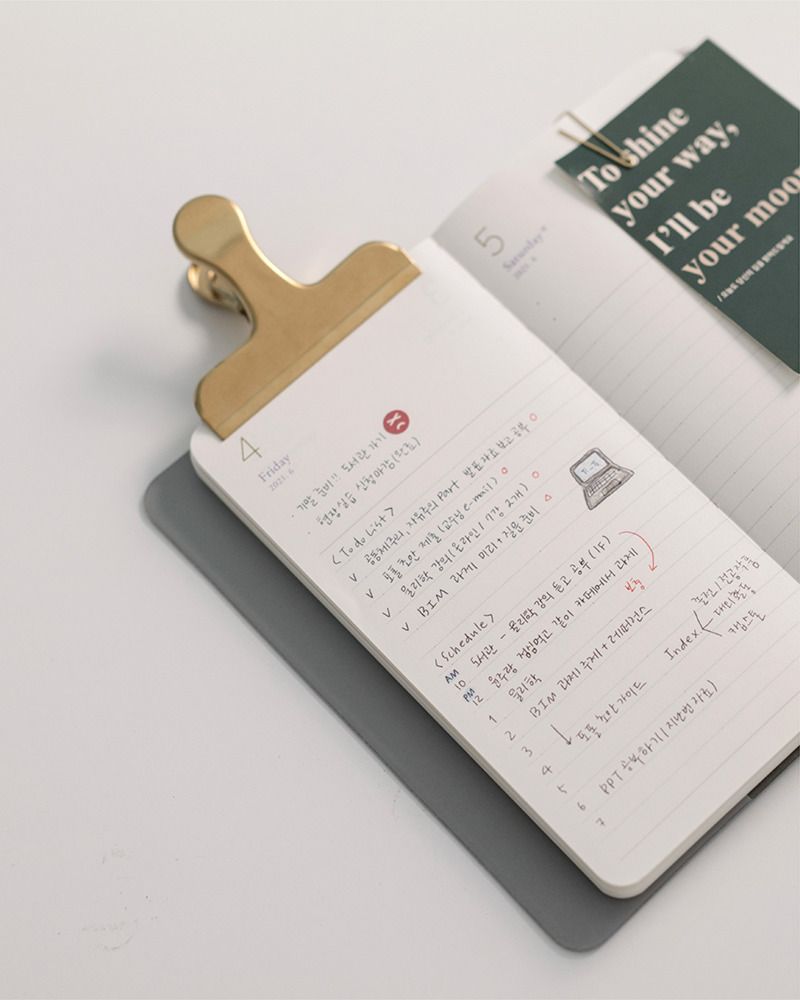 4
Friday
2021. 6
· 기말 준비!! 도서관 가기
· 현장실습 신청마감(완료)
<To do List>
v 공동체주의, 자유주의 Part 발표자료 보고 공부 ○
v 포폴 초안 제출 (교수님 e-mail) ○
v 물리학 강의(온라인 / 7강 2개) ○
v BIM 과제 미리 + 질문 준비 △
<Schedule>
AM
10 도서관 - 물리학 강의 듣고 공부 (1F)
PM
12 점심먹고 같이 카페에서 과제
1 물리학
2 BIM 과제 주제 + 레퍼런스
3
4 ↓ 포폴 초안 가이드
5
6 PPT 공부하기
7
Index
대외활동
캡스톤
5
Saturday
2021. 6
To shine
your way,
I'll be
your moon